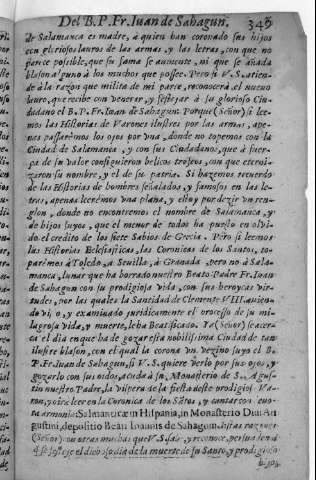 Del B. P. Fr. Iuan de Sahagun. 345
de Salamanca es madre, à quien han coronado sus hijos
con gloriosos lauros de las armas, y las letras, con que no
parece possible, que su fama se aumente, ni que se añada
blason alguno à los muchos que possee. Pero si V.S. atien-
de à la razon que milita de mi parte, reconocerà el nuevo
lauro, que recibe con venerar, y festejar à su glorioso Ciu-
dadano el B.P.Fr. Iuan de Sahagun. Porque (Señor) si lee-
mos las Historias de Varones ilustres por las armas, ape-
nas passarèmos los ojos por una, donde no topemos con la
Ciudad de Salamanca, y con sus Ciudadanos, que à fuer-
ça de su valor consiguieron belicos trofeos, con que eterni-
zaron su nombre, y el de su patria. Si hazemos recuerdo
de las Historias de hombres señalados, y famosos en las le-
tras, apenas leerèmos una plana, y estoy por dezir un ren-
glon, donde no encontremos el nombre de Salamanca, y
de hijos suyos, que el menor de todos ha puesto en olvi-
do el credito de los siete Sabios de Grecia. Pero si leemos
las Historias Eclesiasticas, las Coronicas de los Santos, to-
parèmos à Toledo, à Sevilla, à Granada, pero no à Sala-
manca, lunar que ha borrado nuestro Beato Padre Fr. Iuan
de Sahagun con su prodigiosa vida, con sus heroycas vir-
tudes, por las quales la Santidad de Clemente VIII. avien-
do vi, o, y examinado juridicamente el processo de su mi-
lagrosa vida, y muerte, le ha Beatificado. Ya (Señor) se acer-
ca el dia en que ha de gozar esta nobilissima Ciudad de tan
ilustre blason, con el qual la corona un vezino suyo el B.
P. Fr. Iuan de Sahagun, si V.S. quiere verlo por sus ojos, y
gozarlo con sus oidos, acuda à su Monasterio de S. Agus-
tin nuestro Padre, la vispera de la fiesta deste prodigioso Va-
ron, y oirà leer en la Coronica de los Sãtos, y cantar con
armonia: Salmanticæ in Hispania, in Monasterio Divi Au-
gustini, depositio Beati Ioannis de Sahagun.
(Señor) otras muchas que V.S. sabe, y reconoce,
el dichoso dia de la muerte de su Santo, y prodigioso